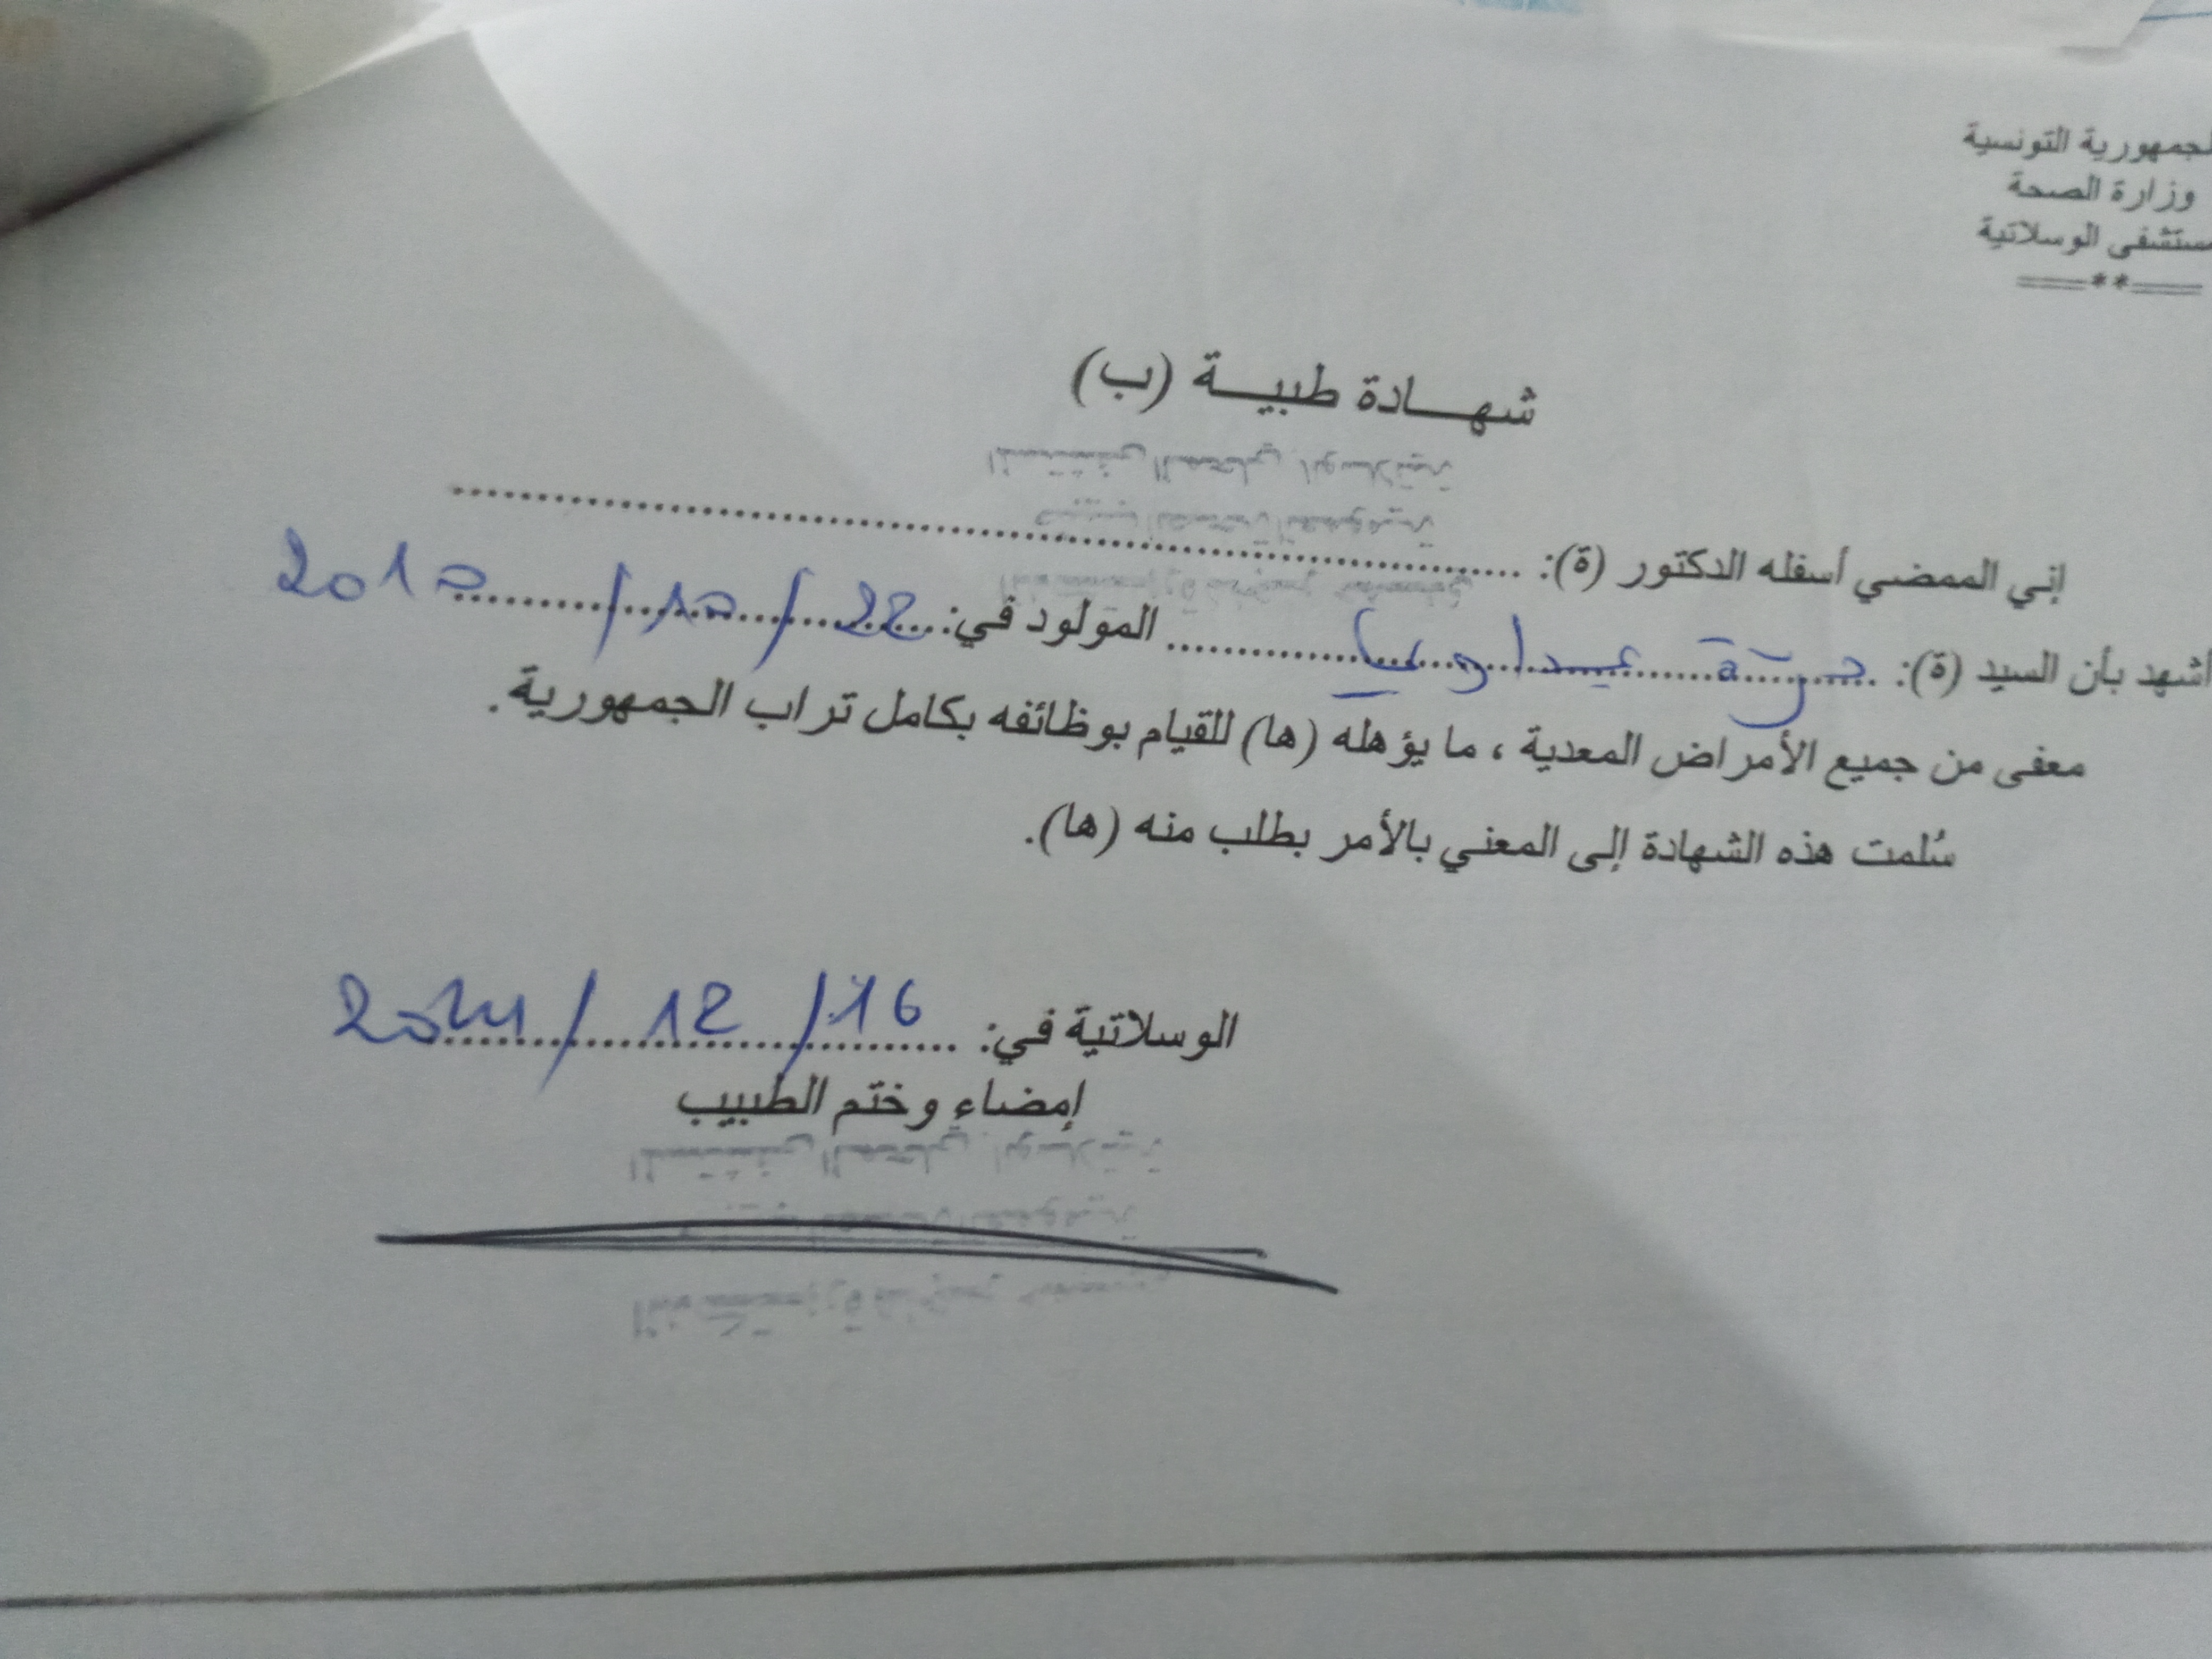 لجمهورية التونسية
وزارة الصحة
ستشفى الوسلاتية
==**==
شهـــادة طبيـــة (ب)
إني الممضي أسفله الدكتور (ة): ........................................
أشهد بأن السيد (ة): ........................ المولود في: 22 / 10 / 2010
معفى من جميع الأمراض المعدية ، ما يؤهله (ها) للقيام بوظائفه بكامل تراب الجمهورية.
سُلمت هذه الشهادة إلى المعني بالأمر بطلب منه (ها).
الوسلاتية في: 16 / 12 / 2024
إمضاء وختم الطبيب